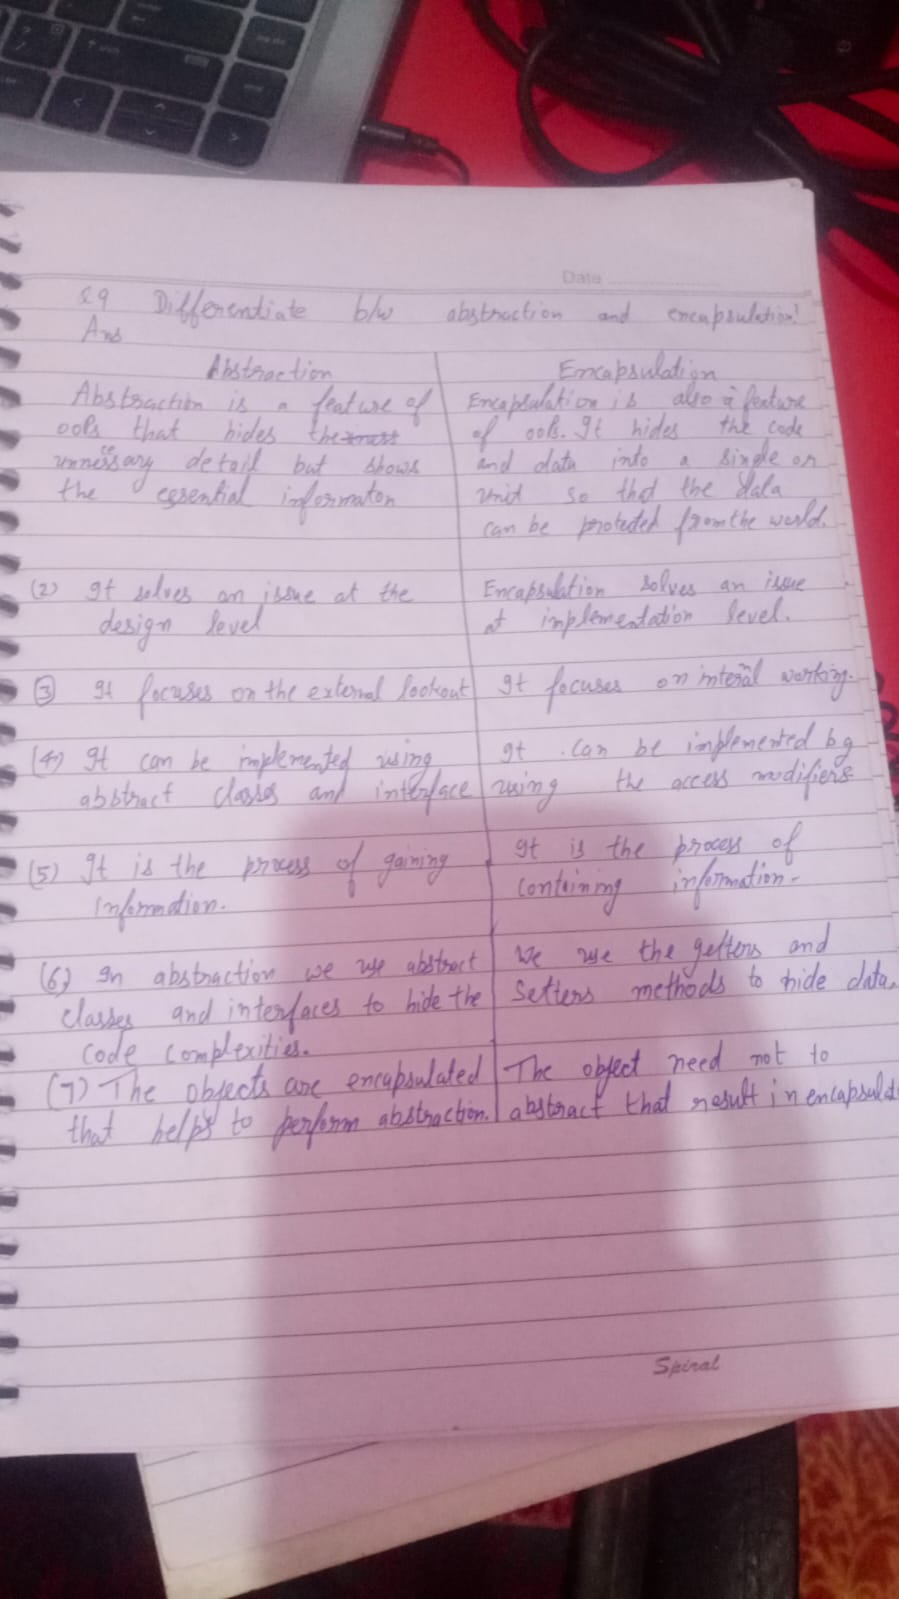 Date
Q9 Differentiate b/w abstraction and encapsulation?
Ans
Abstraction
Encapsulation
Abstraction is a feature of
oops that hides the
unnecessary detail but shows
the essential informaton
Encapsulation is also a feature
of oops. It hides the code
and data into a single or
unit so that the data
can be protected from the world.
(2) It solves an issue at the
design level
Encapsulation solves an issue
at implementation level.
(3) It focuses on the external lookout
It focuses on internal working.
(4) It can be implemented using
abstract classes and interface
It can be implemented by
using the access modifiers
(5) It is the process of gaining
information.
It is the process of
containing information.
(6) In abstraction we use abstract
classes and interfaces to hide the
code complexities.
We use the getters and
setters methods to hide data.
(7) The objects are encapsulated
that helps to perform abstraction.
The object need not to
abstract that result in encapsulat
Spiral